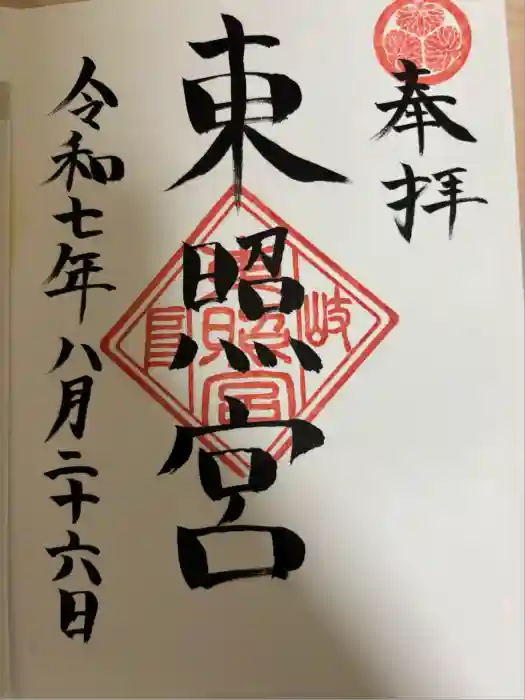 奉拝
東照宮
岐
東照宮
令和七年八月二十六日